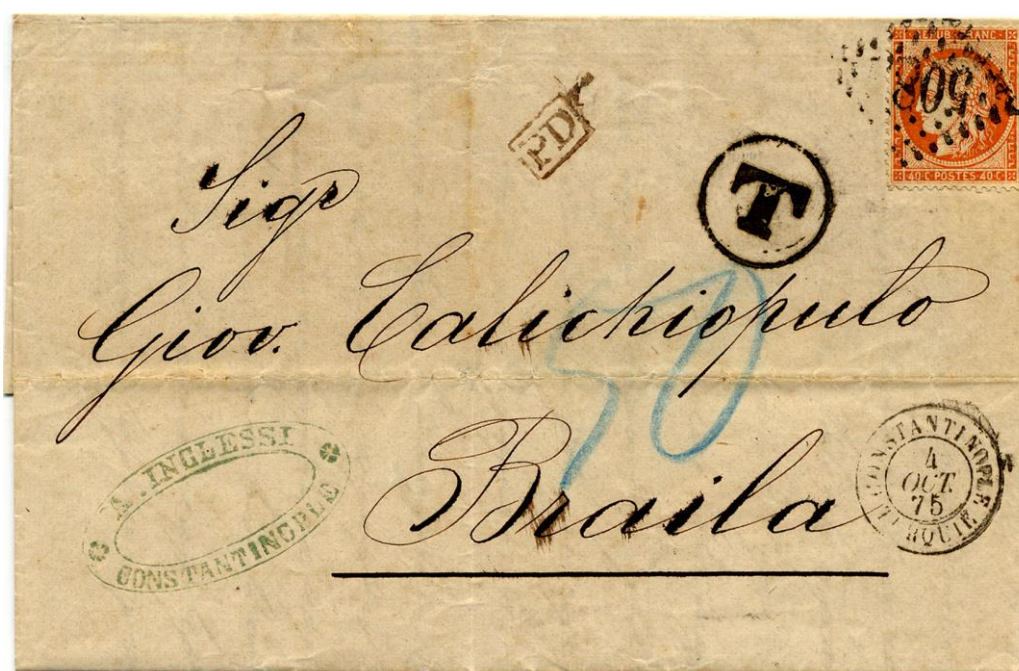 REPUB. FRANC.
5083
40 C POSTES 40 C
PD
T
Sigr
Giov. Calichiopulo
50
Braila
A. INGLESSI
CONSTANTINOPLE
CONSTANTINOPLE TURQUIE
4
OCT.
75